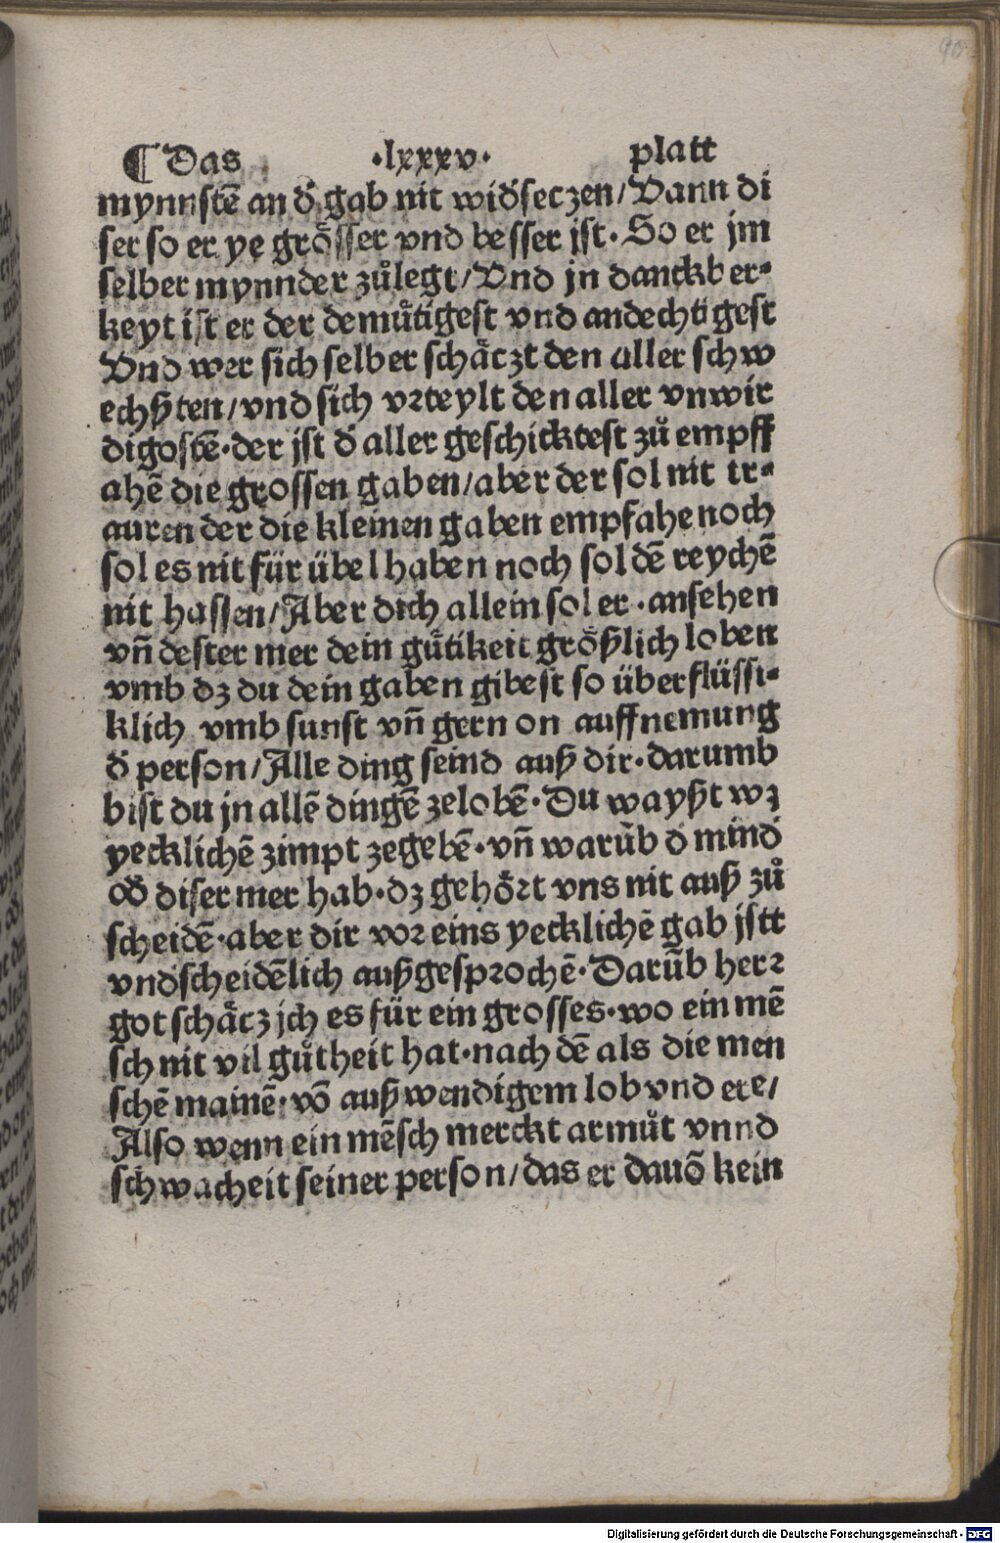 90
¶ Das ·lxxxv· platt
mynnstē an d̕ gab nit wid̕setzen/Vann di
ser so er ye grösser vnd besser jst·So er jm
selber mynnder zůlegt/Vnd jn danckber⸗
keyt ist er der demůtigest vnd andechtigest
Vnd wer sich selber schåtzt den aller schw
echßten/vnd sich vꝛteylt den aller vnwir
digostē·der jst d̕ aller geschicktest zů empff
ahē die grossen gaben/aber der sol nit tr⸗
auren der die kleinen gaben empfahe noch
sol es nit für übel haben noch sol dē reychē
nit hassen/Aber dich allein sol er·ansehen
vn̄ dester mer dein gůtikeit größlich loben
vmb dz du dein gaben gibest so überflüssi⸗
klich vmb sunst vn̄ gern on auffnemung
d̕ person/Alle ding seind auß dir·darumb
bist du jn allē dingē zelobē·Du wayßt wz
yecklichē zimpt zegebē·vn̄ warūb d̕ mind̕
od̕ diser mer hab·dz gehöꝛt vns nit auß zů
scheidē·aber dir voꝛ eins yecklichē gab jstt
vnd̕scheidēlich außgespꝛochē·Darūb herꝛ
got schåtz jch es für ein grosses·wo ein mē
sch nit vil gůtheit hat·nach dē als die men
schē mainē·vō außwendigem lob vnd ere/
Also wenn ein mēsch merckt armůt vnnd
schwacheit seiner person/das er dauō kein
Digitalisierung gefördert durch die Deutsche Forschungsgemeinschaft - DFG